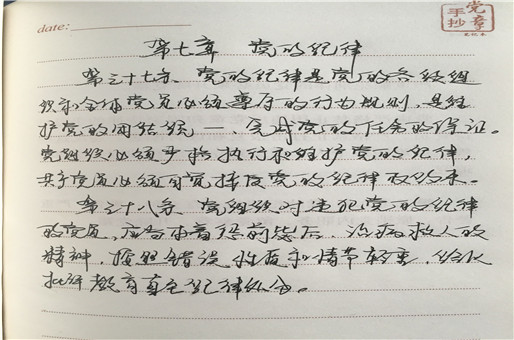 date:
手抄党章
第七章 党的纪律
第三十七条 党的纪律是党的各级组
织和全体党员必须遵守的行为规则,是维
护党的团结统一、完成党的任务的保证。
党组织必须严格执行和维护党的纪律,
共产党员必须自觉接受党的纪律的约束。
第三十八条 党组织对违犯党的纪律
的党员,应当本着惩前毖后、治病救人的
精神,按照错误性质和情节轻重,给以
批评教育直至纪律处分。